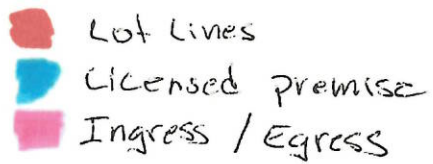 Lot Lines
Licensed premise
Ingress / Egress